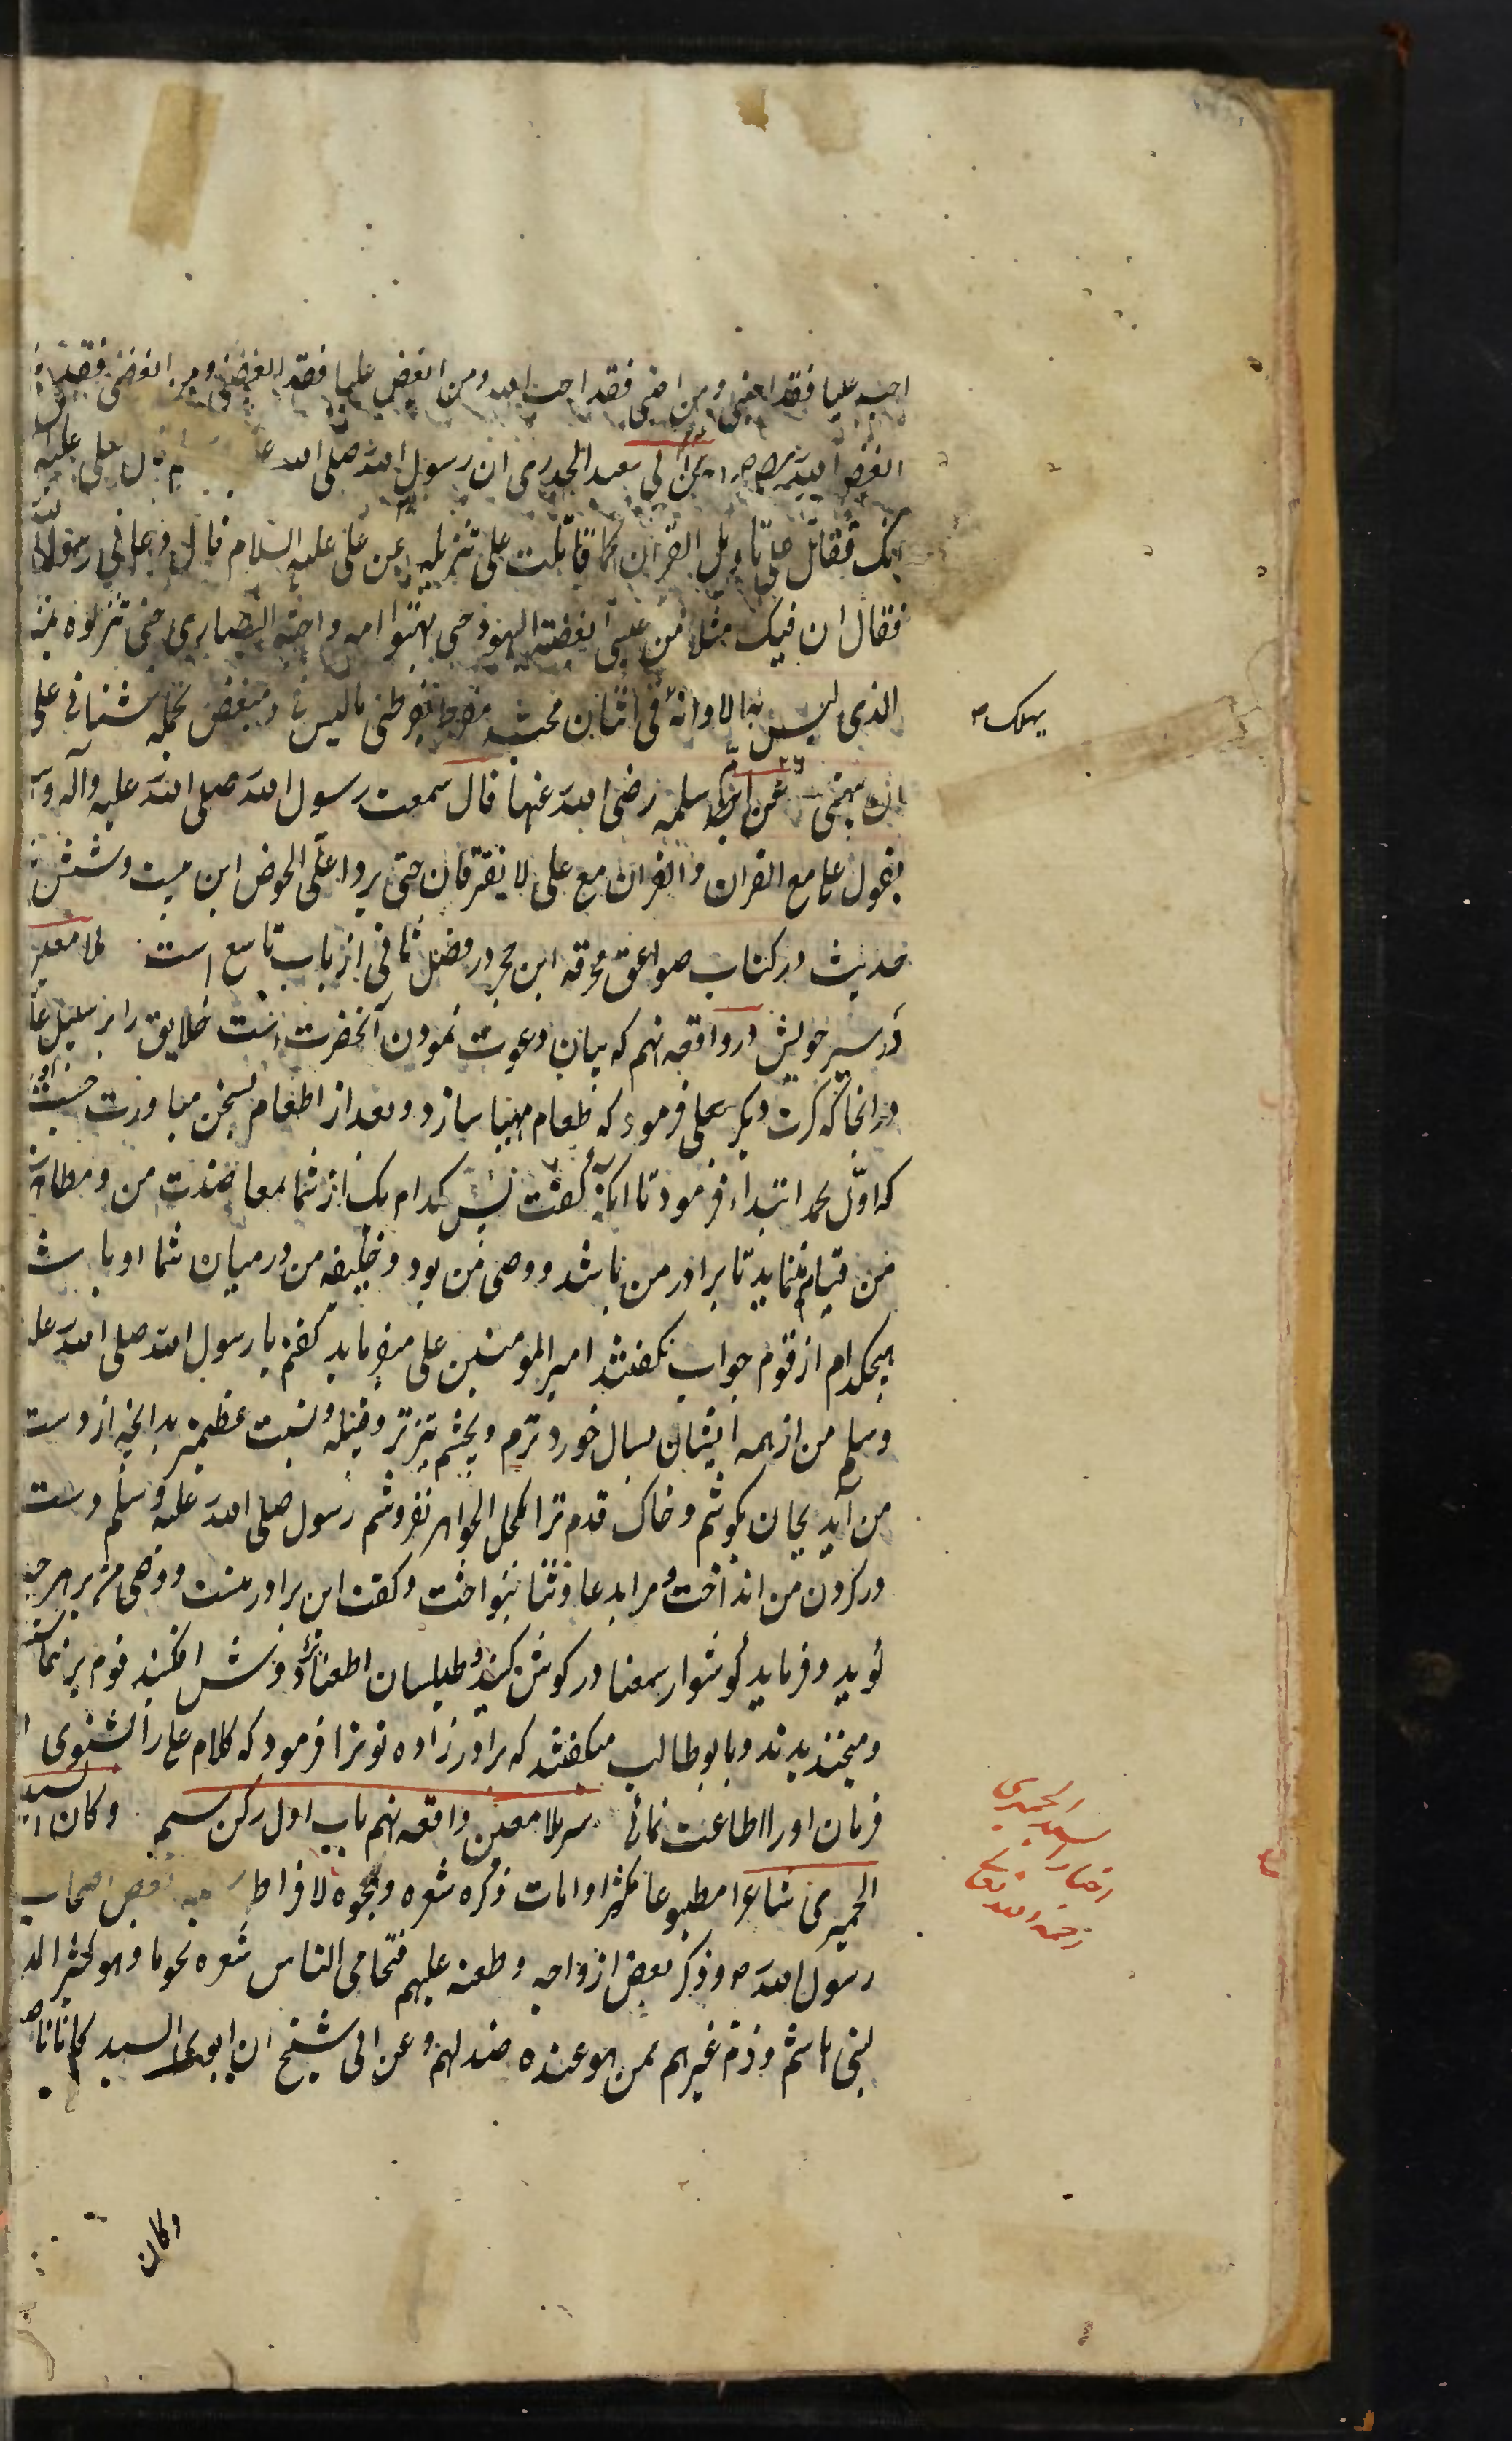 احب علیا فقد احبنی ومن احبنی فقد احب الله ومن ابغض علیا فقد ابغضنی ومن ابغضنی فقد
ابغض الله عن ابی سعید الخدری ان رسول الله صلی الله قال لعلی علیه
انک تقاتل علی تاویل القران کما قاتلت علی تنزیله عن علی علیه السلام قال دعانی رسول الله
فقال ان فیک مثلا من عیسی ابغضته الیهود حتی بهتوا امه واحبته النصاری حتی نزلوه بمنز
الذی لیس به الا وانه فی اثنان محب مفرط یفرطنی بما لیس فی ومبغض یحمله شنانی علی
یهلک
ان یبهتنی عن ام سلمه رضی الله عنها قال سمعت رسول الله صلی الله علیه وآله و
یقول علی مع القران والقران مع علی لا یفترقان حتی یردا علی الحوض این بیست وشش
حدیث در کتاب صواعق محرقه ابن حجر در فصل ثانی از باب تاسع است ملا معین
در سیر خویش در واقعه نهم که بیان دعوت نمودن آنحضرت است خلایق را بر سبیل
در انجا که کرت دیگر علی فرمود که طعام مهیا سازد وبعد از اطعام بسخن مبادرت جست
که اول محمد ابتداء فرمود تا انکه گفت پس کدام یک از شما بمعاضدت من و
من قیام مینماید تا برادر من باشد ووصی من بود وخلیفه من در میان شما او باشد
هیچکدام از قوم جواب نگفتند امیر المومنین علی میفرماید گفتم یا رسول الله صلی الله علیه
وسلم من از همه ایشان بسال خورد ترم وبچشم تیزتر بدانچه از دست
من آید بجان بکوشم وخاک قدم ترا بکحل الجواهر نفروشم رسول صلی الله علیه وسلم دست
در گردن من انداخت ومرا بدعا وثنا بنواخت وگفت این برادر منست ووصی من بر هر چه
گوید وفرماید گوشوار سمعنا در گوش کنید وطیلسان اطعنا بر دوش افکنید قوم برخاستند
ومیخندیدند وبا ابوطالب میگفتند که برادر زاده تو ترا فرمود که کلام علی را شنوی
فرمان او را اطاعت نمائی سیر ملا معین واقعه نهم باب اول رکن سیم وکان السید
الحمیری شاعرا مطبوعا مکثرا وامات ذکره شعره وهجوه لافراطه بعض اصحاب
رسول الله ص وذکر بعض ازواجه وطعنه علیهم فتحامی الناس شعره نحوها وهو کثیر المد
لبنی هاشم وذم غیرهم ممن هو عنده ضد لهم وعن ابی شیخ ان ابوی السید کانا
الحمیری
اخبار السید
رحمه الله تعالی
وکان